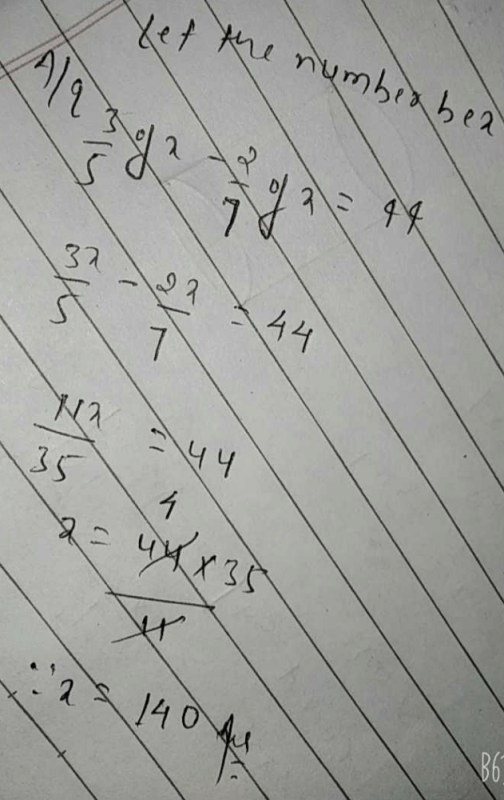 Let the number be x
A/q 3/5 of x - 2/7 of x = 44
3x/5 - 2x/7 = 44
11x/35 = 44
4
x = 44 × 35 / 11
∵ x = 140
B67